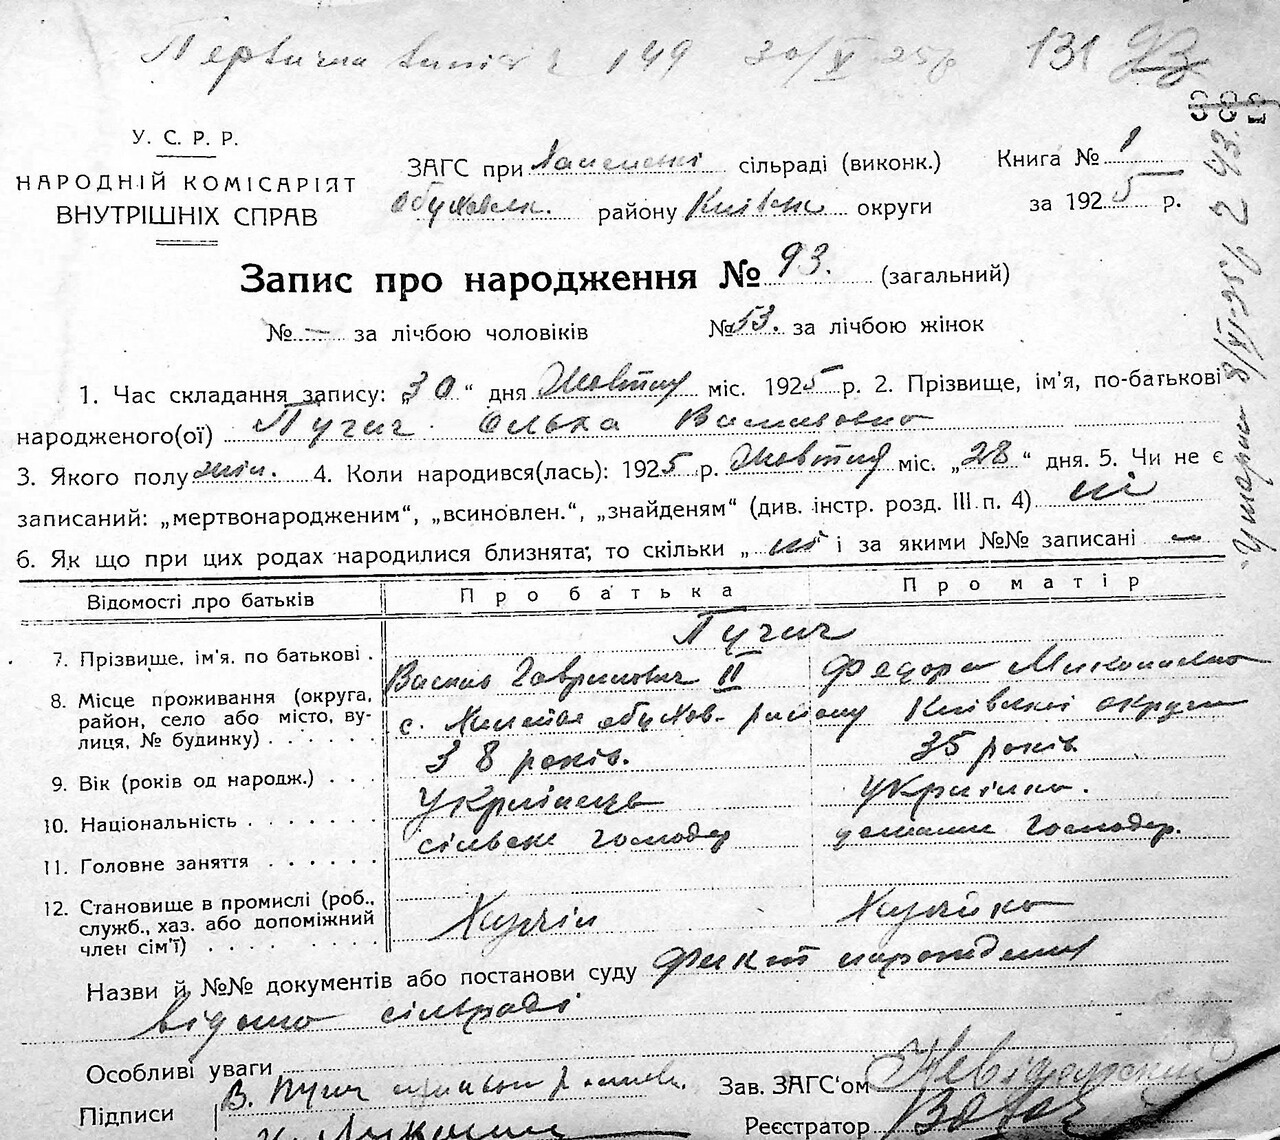 149 30/X 25р 131 93
У. С. Р. Р.
НАРОДНІЙ КОМІСАРІЯТ
ВНУТРІШНІХ СПРАВ
ЗАГС при сільраді (виконк.)
Обуховськ. району Київськ округи
Книга № 1
за 1925 р.
Запис про народження № 93. (загальний)
№ — за лічбою чоловіків № 53. за лічбою жінок
1. Час складання запису: „30“ дня Жовтня міс. 1925 р. 2. Прізвище, ім'я, по-батькові
народженого(ої) Пугач Ольха Василівна
3. Якого полу жін. 4. Коли народився(лась): 1925 р. Жовтня міс. „28“ дня. 5. Чи не є
записаний: „мертвонародженим“, „всиновлен.“, „знайденям“ (див. інстр. розд. III п. 4) ні
6. Як що при цих родах народилися близнята, то скільки „ ні і за якими №№ записані —
Відомості про батьків Про батька Про матір
Пугач
7. Прізвище, ім'я, по батькові .
Василь Гаврилович II Федора Миколаївна
8. Місце проживання (округа,
район, село або місто, ву-
лиця, № будинку) . . . . . .
с. обухов. району Київської округи
9. Вік (років од народж.) . . .
38 років. 35 років
10. Національність . . . . . . .
Українець Українка.
11. Головне заняття . . . . . .
сільське господар господар.
12. Становище в промислі (роб.,
служб., хаз. або допоміжний
член сім'ї) . . . . . . . . .
Хазяїн Хазяйка
Назви й №№ документів або постанови суду факт народження
відомо сільраді
Особливі уваги
Підписи
В. Пугач
Зав. ЗАГС'ом
Реєстратор
Умерла 8/XI-25р. 2 43.